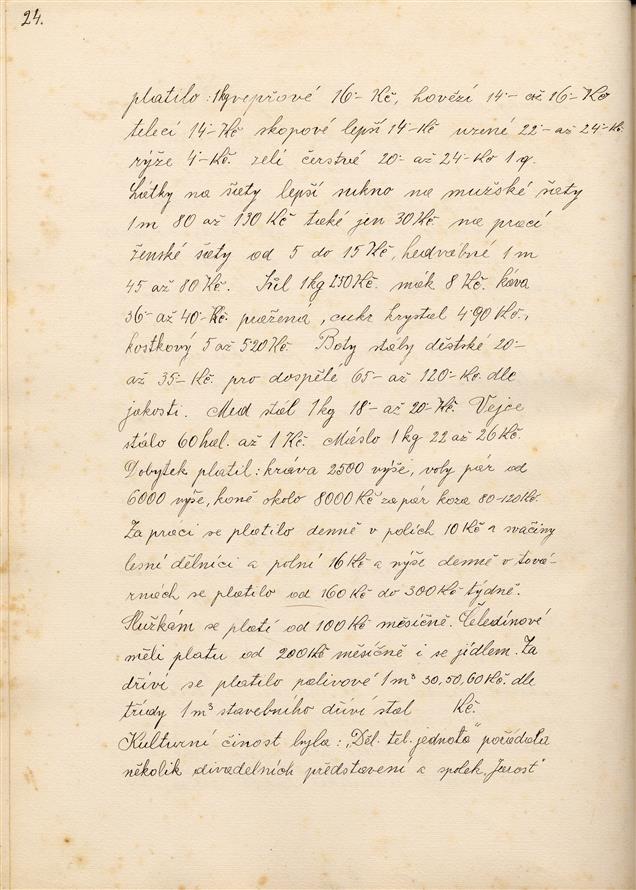 24.
platilo: 1kg vepřové 16·- Kč, hovězí 14·- až 16·- Kč
telecí 14·- Kč skopové lepší 14·- Kč uzené 22·- až 24·- Kč
rýže 4·- Kč. zelí čerstvé 20·- až 24·- Kč 1 q.
Látky na šaty lepší sukno na mužské šaty
1 m 80 až 130 Kč také jen 30 Kč. na prací
ženské šaty od 5 do 15 Kč, hedvábné 1 m
45 až 80 Kč. Sůl 1 kg 2·30 Kč. mák 8 Kč. káva
36·- až 40·- Kč. pražená, cukr krystal 4·90 Kč.,
kostkový 5 až 5·20 Kč. Boty stály dětské 20·-
až 35·- Kč. pro dospělé 65·- až 120·- Kč. dle
jakosti. Med stál 1 kg 18·- až 20·- Kč. Vejce
stálo 60 hal. až 1 Kč. Máslo 1 kg 22 až 26 Kč.
Dobytek platil: kráva 2500 výše, voly pár od
6000 výše, koně okolo 8000 Kč za pár koza 80-120 Kč.
Za práci se platilo denně v polích 10 Kč a svačiny
lesní dělníci a polní 16 Kč a výše denně v tová-
rnách se platilo od 160 Kč do 300 Kč týdně.
Služkám se platí od 100 Kč měsíčně. Čeledínové
měli platu od 200 Kč měsíčně i se jídlem. Za
dříví se platilo palivové 1 m³ 30, 50, 60 Kč. dle
třídy 1 m³ stavebního dříví stál Kč.
Kulturní činost byla: „Děl. tel. jednota" pořádala
několik divadelních představení a spolek „Jarost"